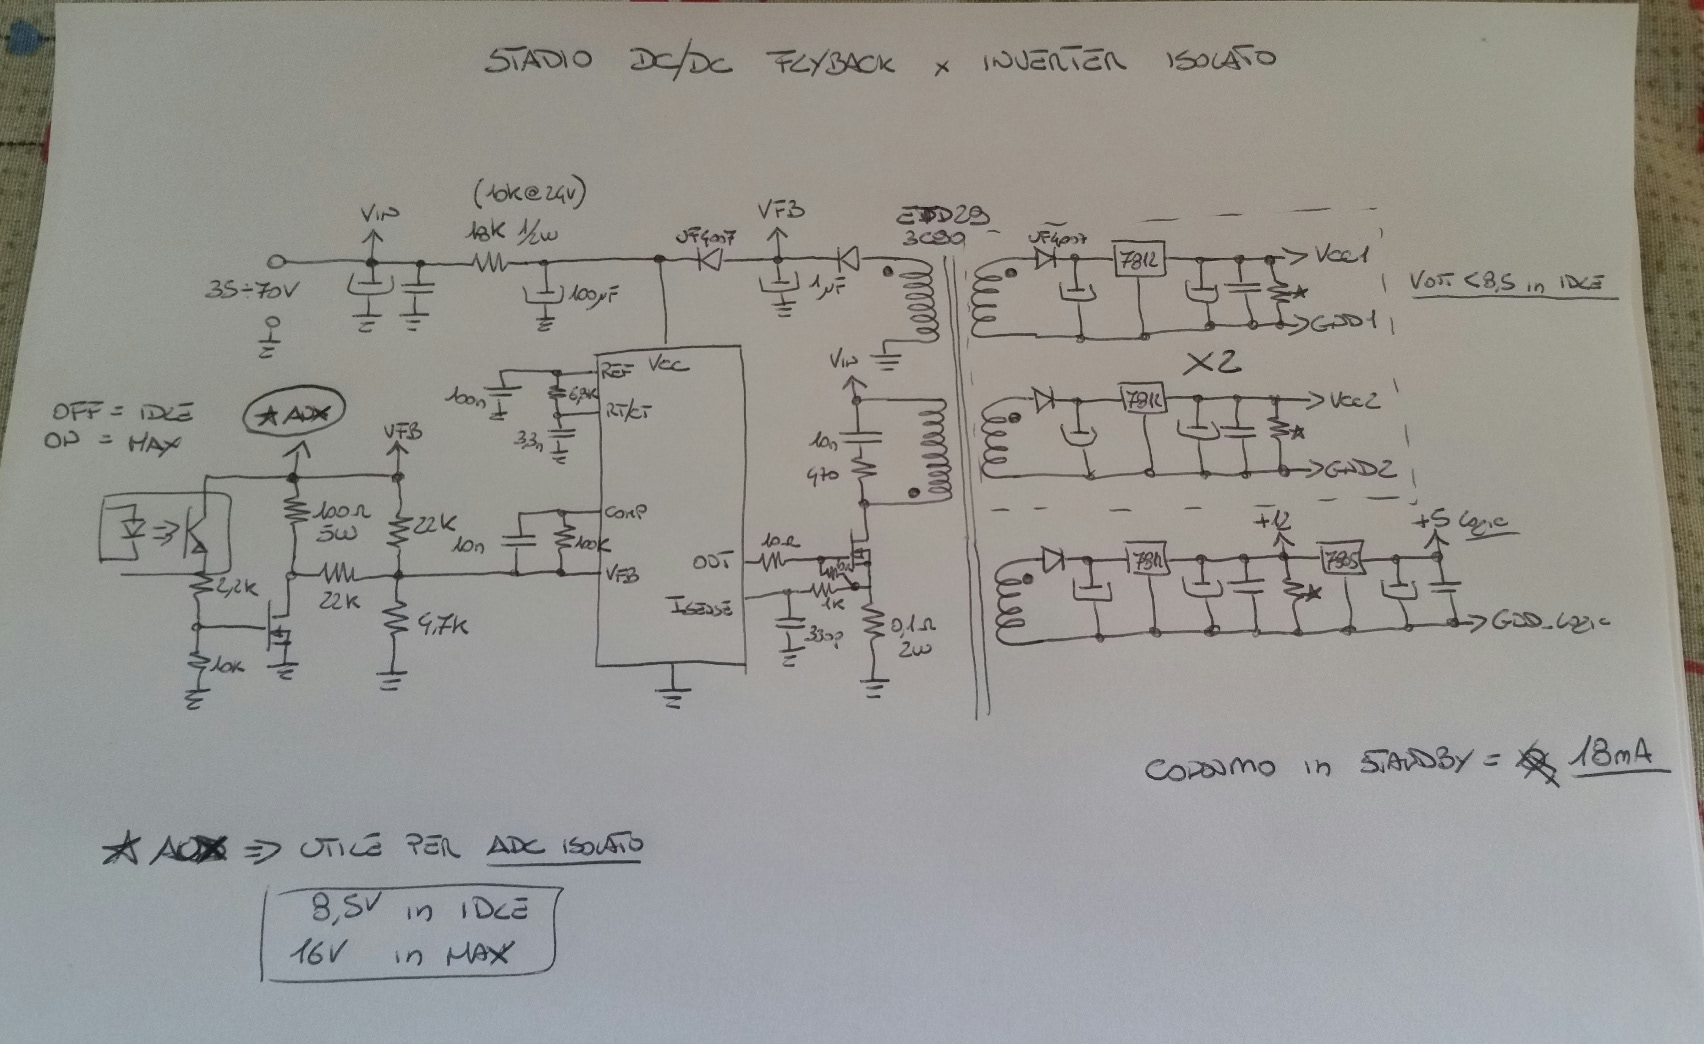 STADIO DC/DC FLYBACK x INVERTER ISOLATO
(10K@24V)
18K 1/2W
VIN
35÷70V
100µF
UF4007
VFB
1µF
3C90
UF4007
7812
VCC1
GND1
VOUT <8,5 in IDLE
X2
7812
VCC2
GND2
+12
+5 Logic
7812
7805
GND_Logic
OFF = IDLE
ON = MAX
★ AUX
VFB
100Ω
5W
22K
2,2K
22K
4,7K
10K
REF
VCC
100n
RT/CT
3,3n
COMP
10n
100K
VFB
OUT
ISENSE
VIN
10n
470
10Ω
1K
330p
0,1Ω
2W
CONSUMO in STANDBY = 18mA
★ AUX => UTILE PER ADC ISOLATO
8,5V in IDLE
16V in MAX